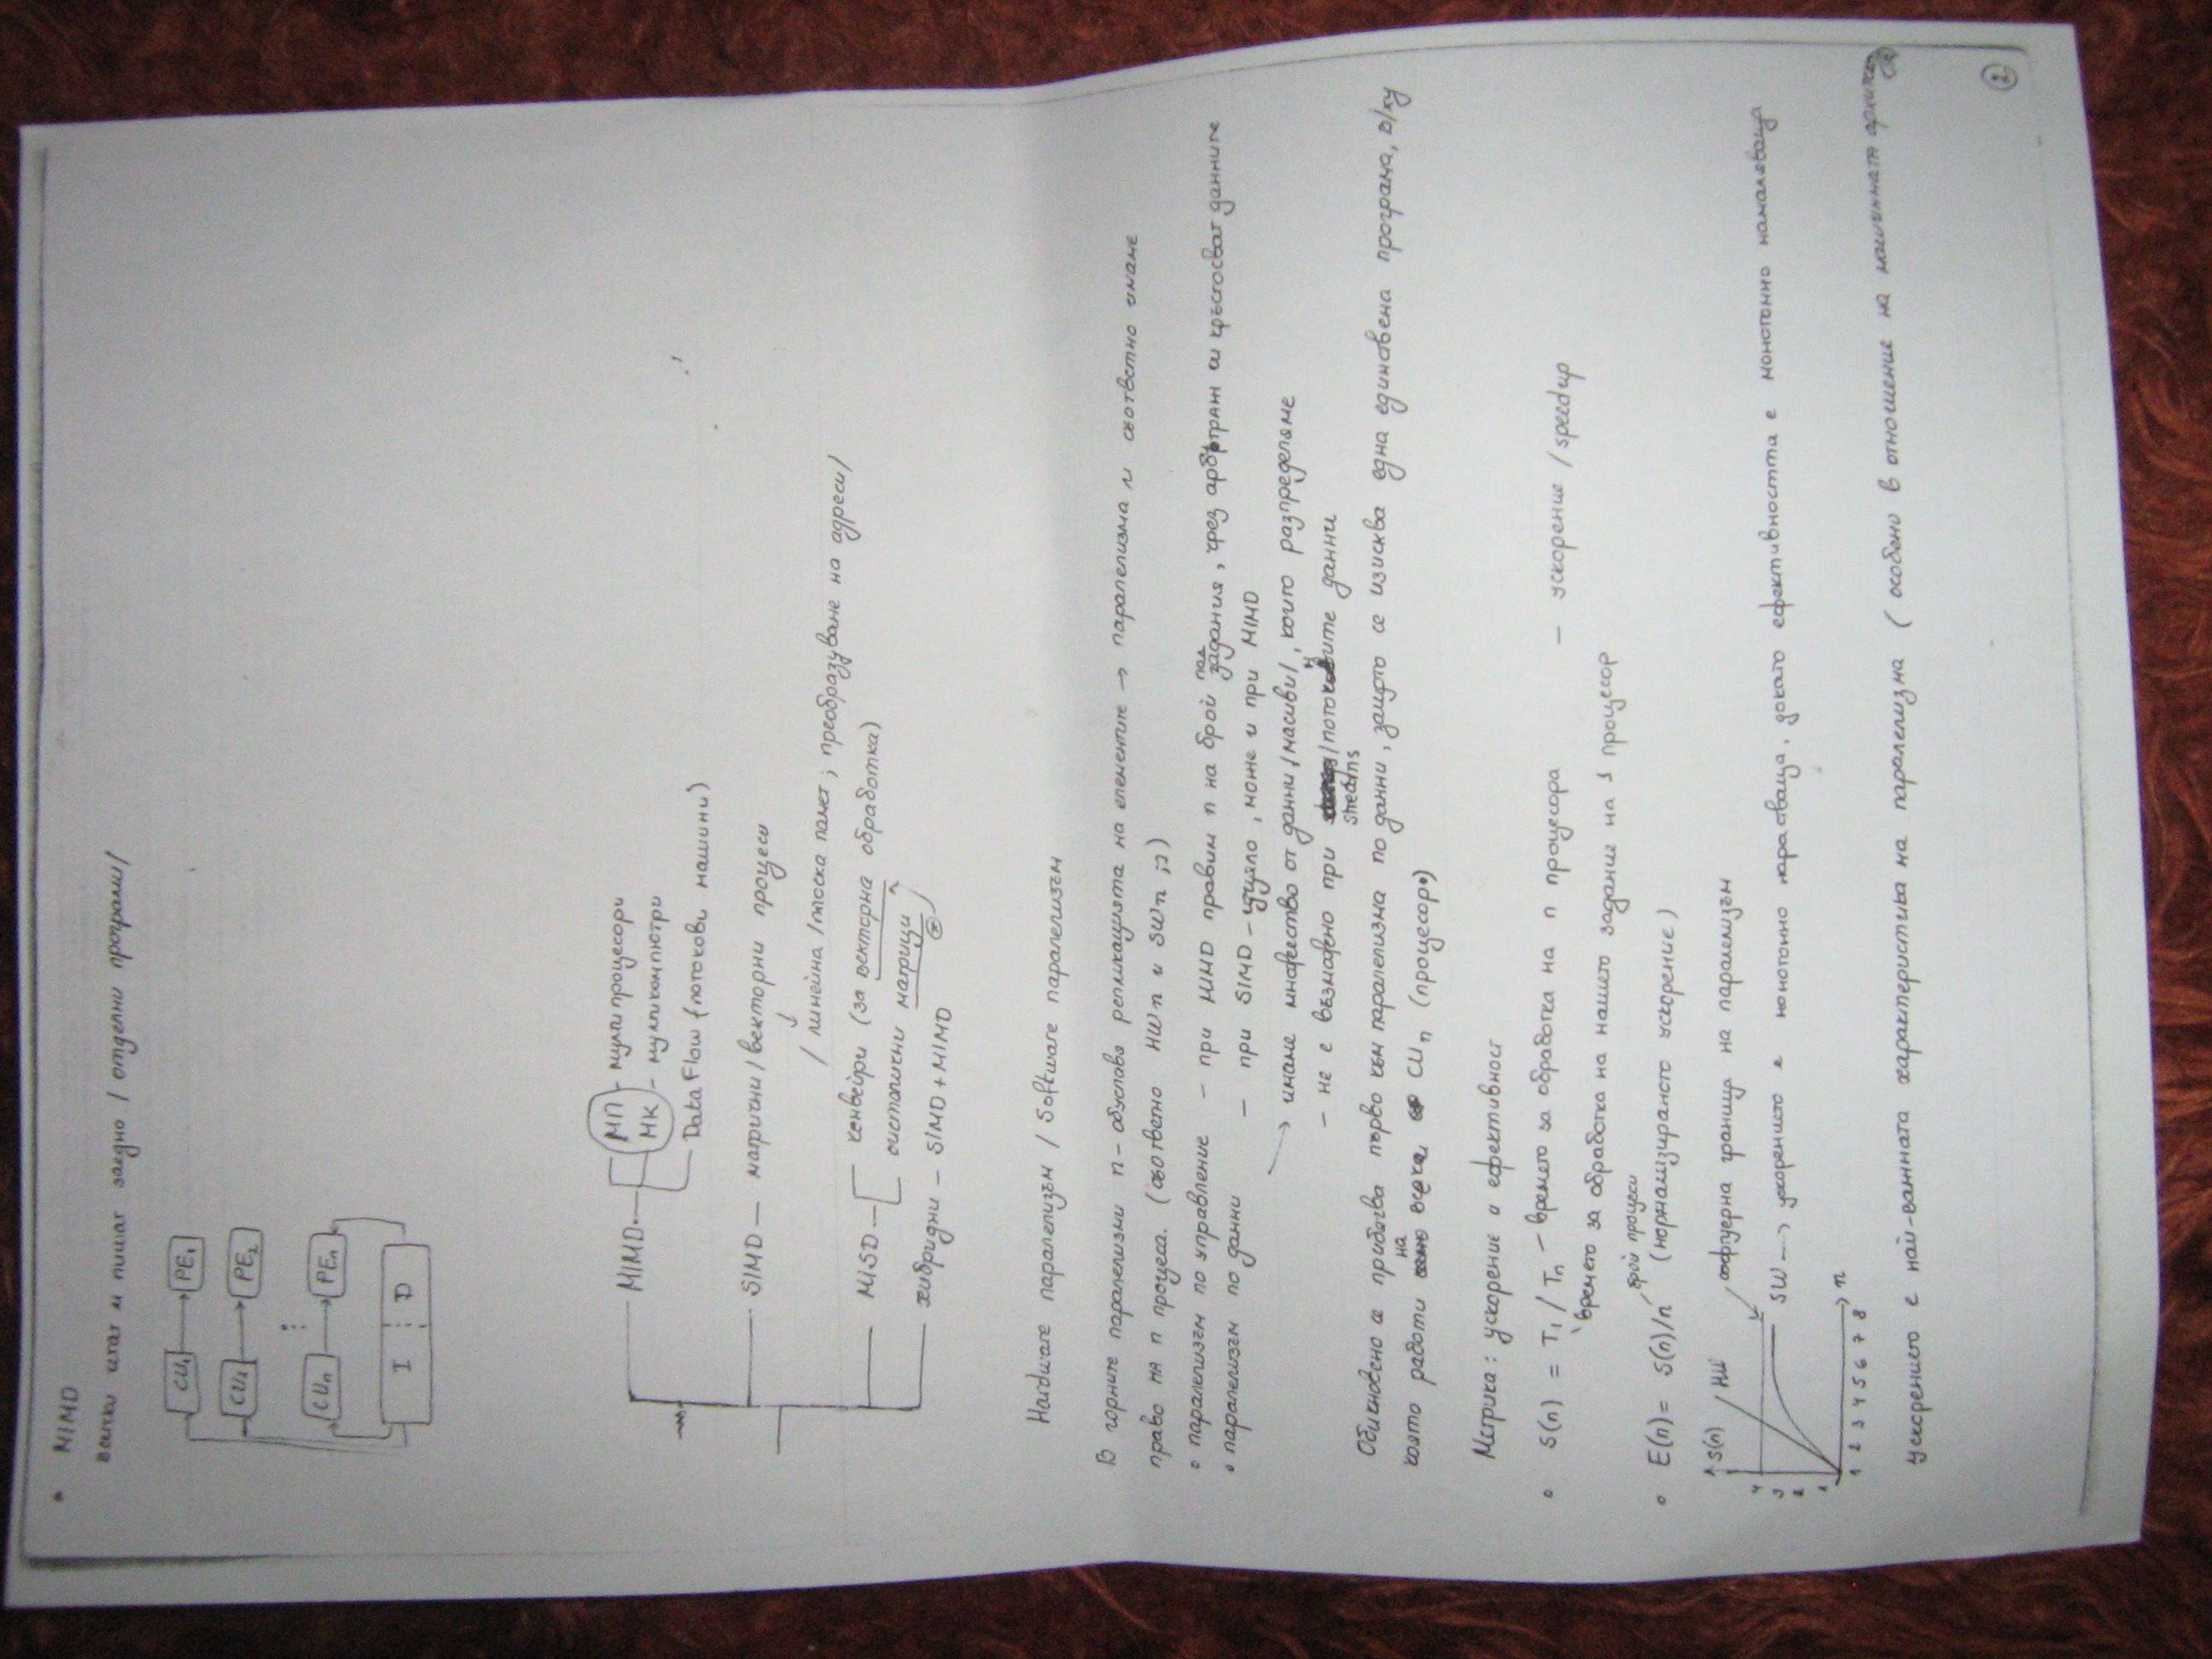 • MIMD
всички четат и пишат заедно / отделни програми/
CU₁ → PE₁
CU₂ → PE₂
⋮
CUₙ → PEₙ
I ⋮ D
MIMD
МП - мулти процесори
МК - мултикомпютри
Data Flow (потокови машини)
SIMD — матрични / векторни процеси
/ линейна / плоска памет ; преобразуване на адреси/
MISD
конвейри (за векторна обработка)
систолични матрици
хибридни - SIMD + MIMD
Hardware паралелизъм / Software паралелизъм
В горните паралелизми n - обуславя репликацията на елементите → паралелизма и съответно имаме
право на n процеса. (съответно HWn и SWn ;))
• паралелизъм по управление - при MIMD правим n на брой подзадания, чрез арбитраж си кръстосват данните
• паралелизъм по данни - при SIMD - изцяло, може и при MIMD
→ имаме множество от данни /масиви/, които разпределяме
- не е възможно при /потоковите данни
streams
Обикновено се прибягва първо към паралелизма по данни, защото се изисква една единствена програма, в/ху
която работи на всеки CUₙ (процесор)
Метрика: ускорение и ефективност
• S(n) = T₁ / Tₙ - времето за обработка на n процесора — ускорение / speedup
времето за обработка на нашето задание на 1 процесор
• E(n) = S(n)/n (нормализираното ускорение)
брой процеси
S(n) HW софтуерна граница на паралелизъм
SW → ускорението е монотонно нарастваща, докато ефективността е монотонно намаляваща
4
3
2
1
1 2 3 4 5 6 7 8 n
ускорението е най-важната характеристика на паралелизма ( особено в отношение на машинната
2